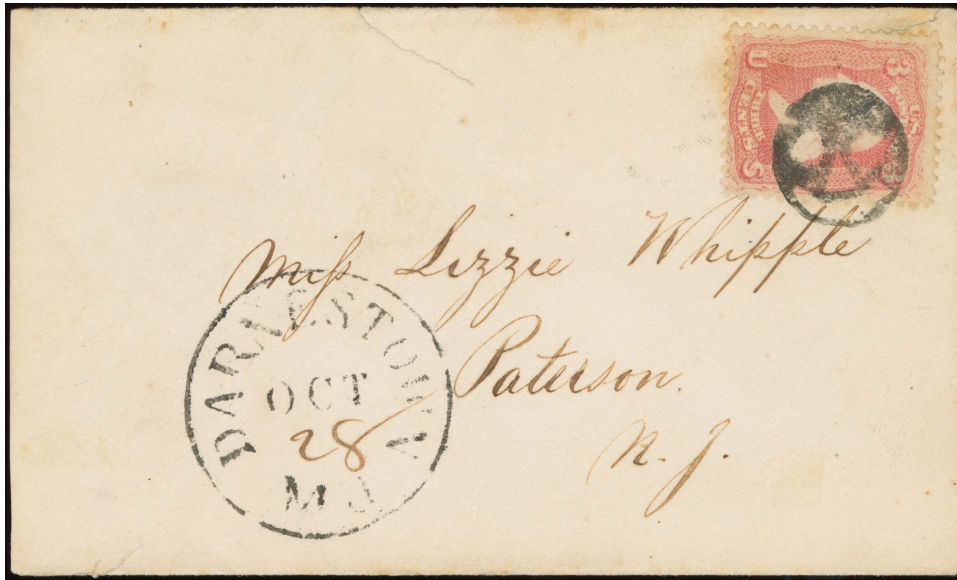 3 U.S. POST 3
U THREE CENTS S
Miss Lizzie Whipple
Paterson.
N. J.
DARNESTOWN
OCT
28
MD